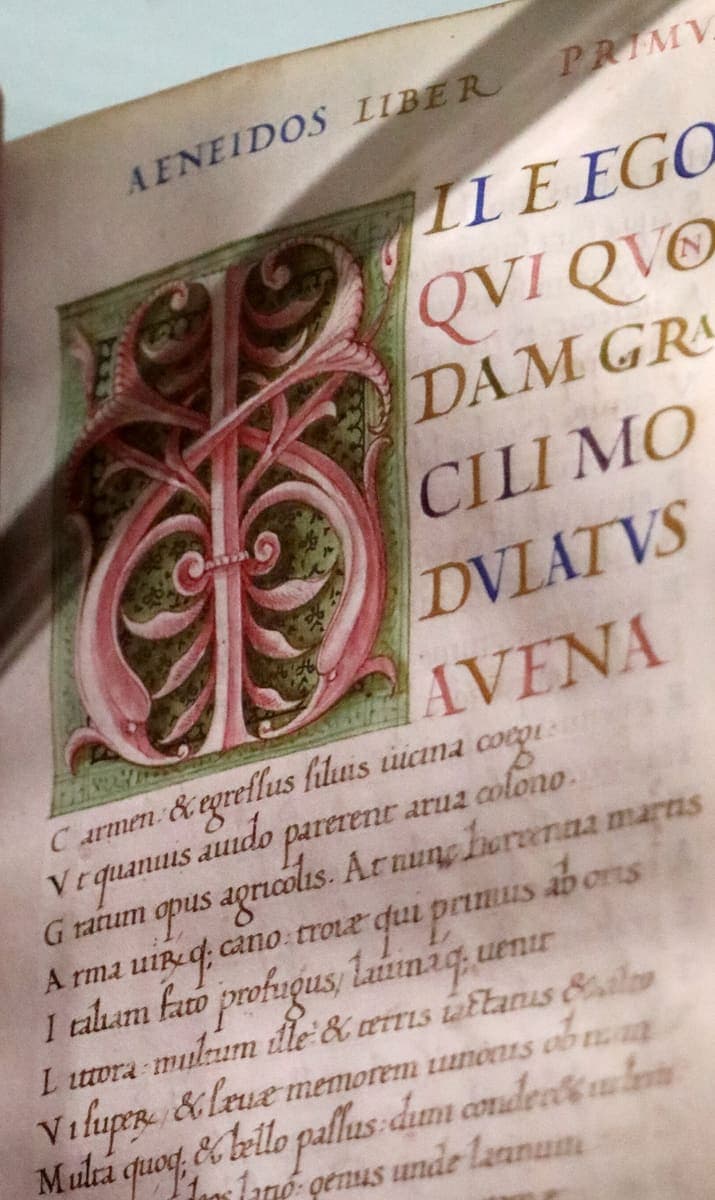 AENEIDOS LIBER PRIMV
ILLE EGO
QVI QVON
DAM GRA
CILI MO
DVLATVS
AVENA
Carmen: & egressus siluis uicina coegi:
Vt quamuis auido parerent arua colono.
Gratum opus agricolis. At nunc horrentia martis
Arma uiꝝq; cano: troiæ qui primus ab oris
Italiam fato profugus, lauinaq; uenit
Littora: multum ille & terris iactatus & alto
Vi supeꝝ, & sæuæ memorem iunonis ob iram
Multa quoq; & bello passus: dum conderet &
latio: genus unde latinum